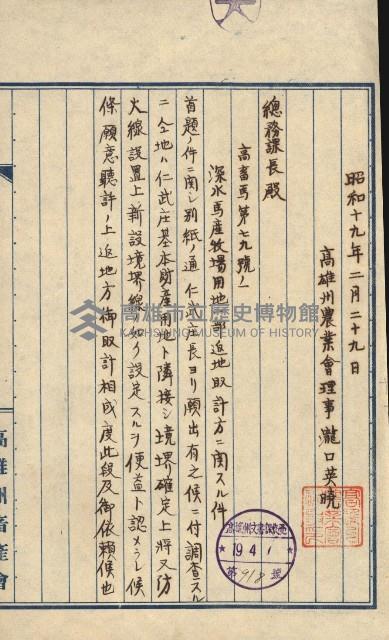 昭和十九年二月二十九日
高雄州農業會理事 瀧口英曉
總務課長殿
高畜馬第七九號ノ一
深水馬產牧場用地一部返地取計方ニ關スル件
首題ノ件ニ關シ別紙ノ通仁武庄長ヨリ願出有之候ニ付調查スル
ニ仝地ハ仁武庄基本財產用地ト隣接シ境堺確定上將又防
火線設置上新設境堺線如ク設定スルヲ便益ト認メラレ候
條願意聽許ノ上返地方御取計相成度此段及御依賴候也
高雄州畜產會
19.4.1
第918號
高雄市立歷史博物館
KAOHSIUNG MUSEUM OF HISTORY